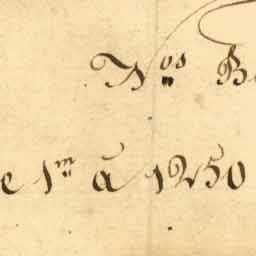 Nos B
e 1m à 1250